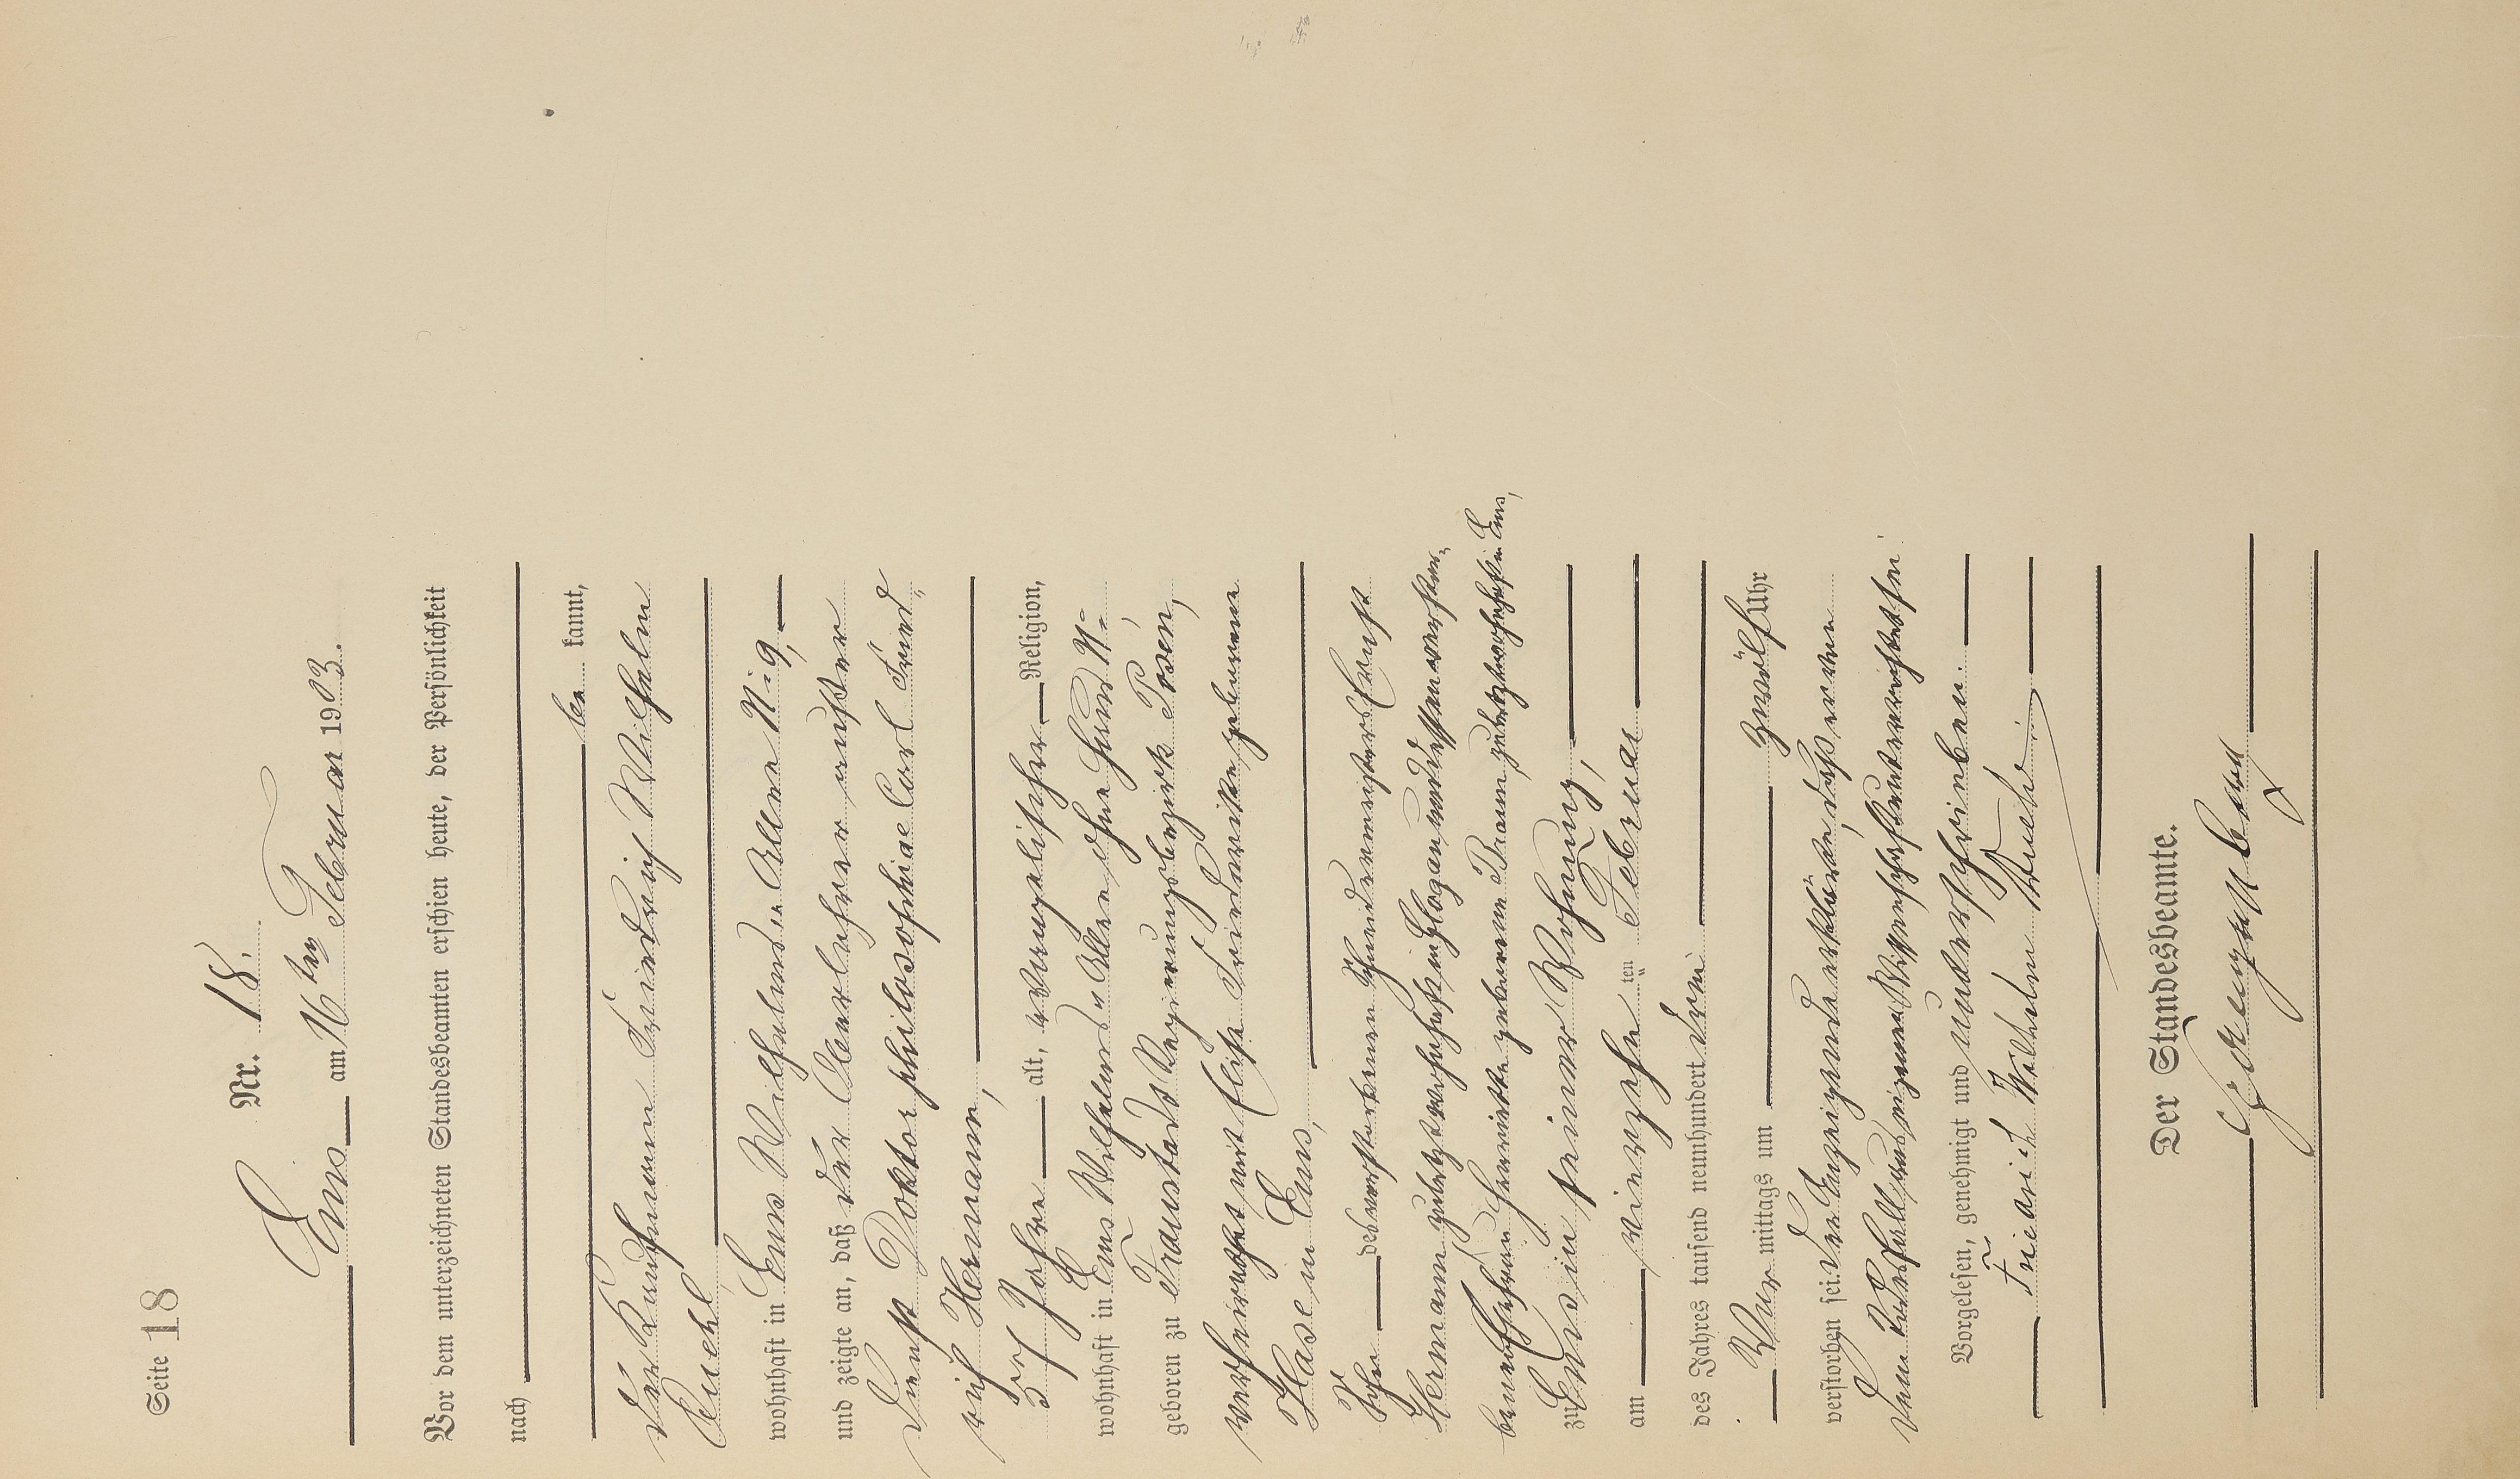 Seite 18
Nr. 18.
Ems am 16ten Februar 1903.
Vor dem unterzeichneten Standesbeamten erschien heute, der Persönlichkeit
nach
be kannt,
der Kaufmann Friedrich Wilhelm
wohnhaft in Ems Wilhelms-Allee N. 9,
und zeigte an, daß der Oberlehrer außer
Dienst Doktor philosophiae Carl Fried-
rich Hermann,
57 Jahre alt, evangelischer Religion,
wohnhaft in Ems Wilhelms-Allee ohne Haus N:,
geboren zu Fraustadt Regierungsbezirk Posen,
verheirathet mit Elise Friederike geborenen
Hase in Ems,
Sohn des verstorbenen Schneidermeisters Ernst
Hermann zuletzt wohnhaft in Glogau und dessen verstor-
benen Ehefrau Henriette geborenen zuletzt wohnhaft in Ems,
zu Ems in seiner Wohnung,
am vierzehn ten Februar
des Jahres tausend neunhundert drei
Vor mittags um zwölf Uhr
verstorben sei. Der Anzeigende erklärte, daß er von
dem Todesfall aus eigener Wissenschaft unterrichtet sei.
Vorgelesen, genehmigt und unterschrieben
Friedrich Wilhelm
Der Standesbeamte.